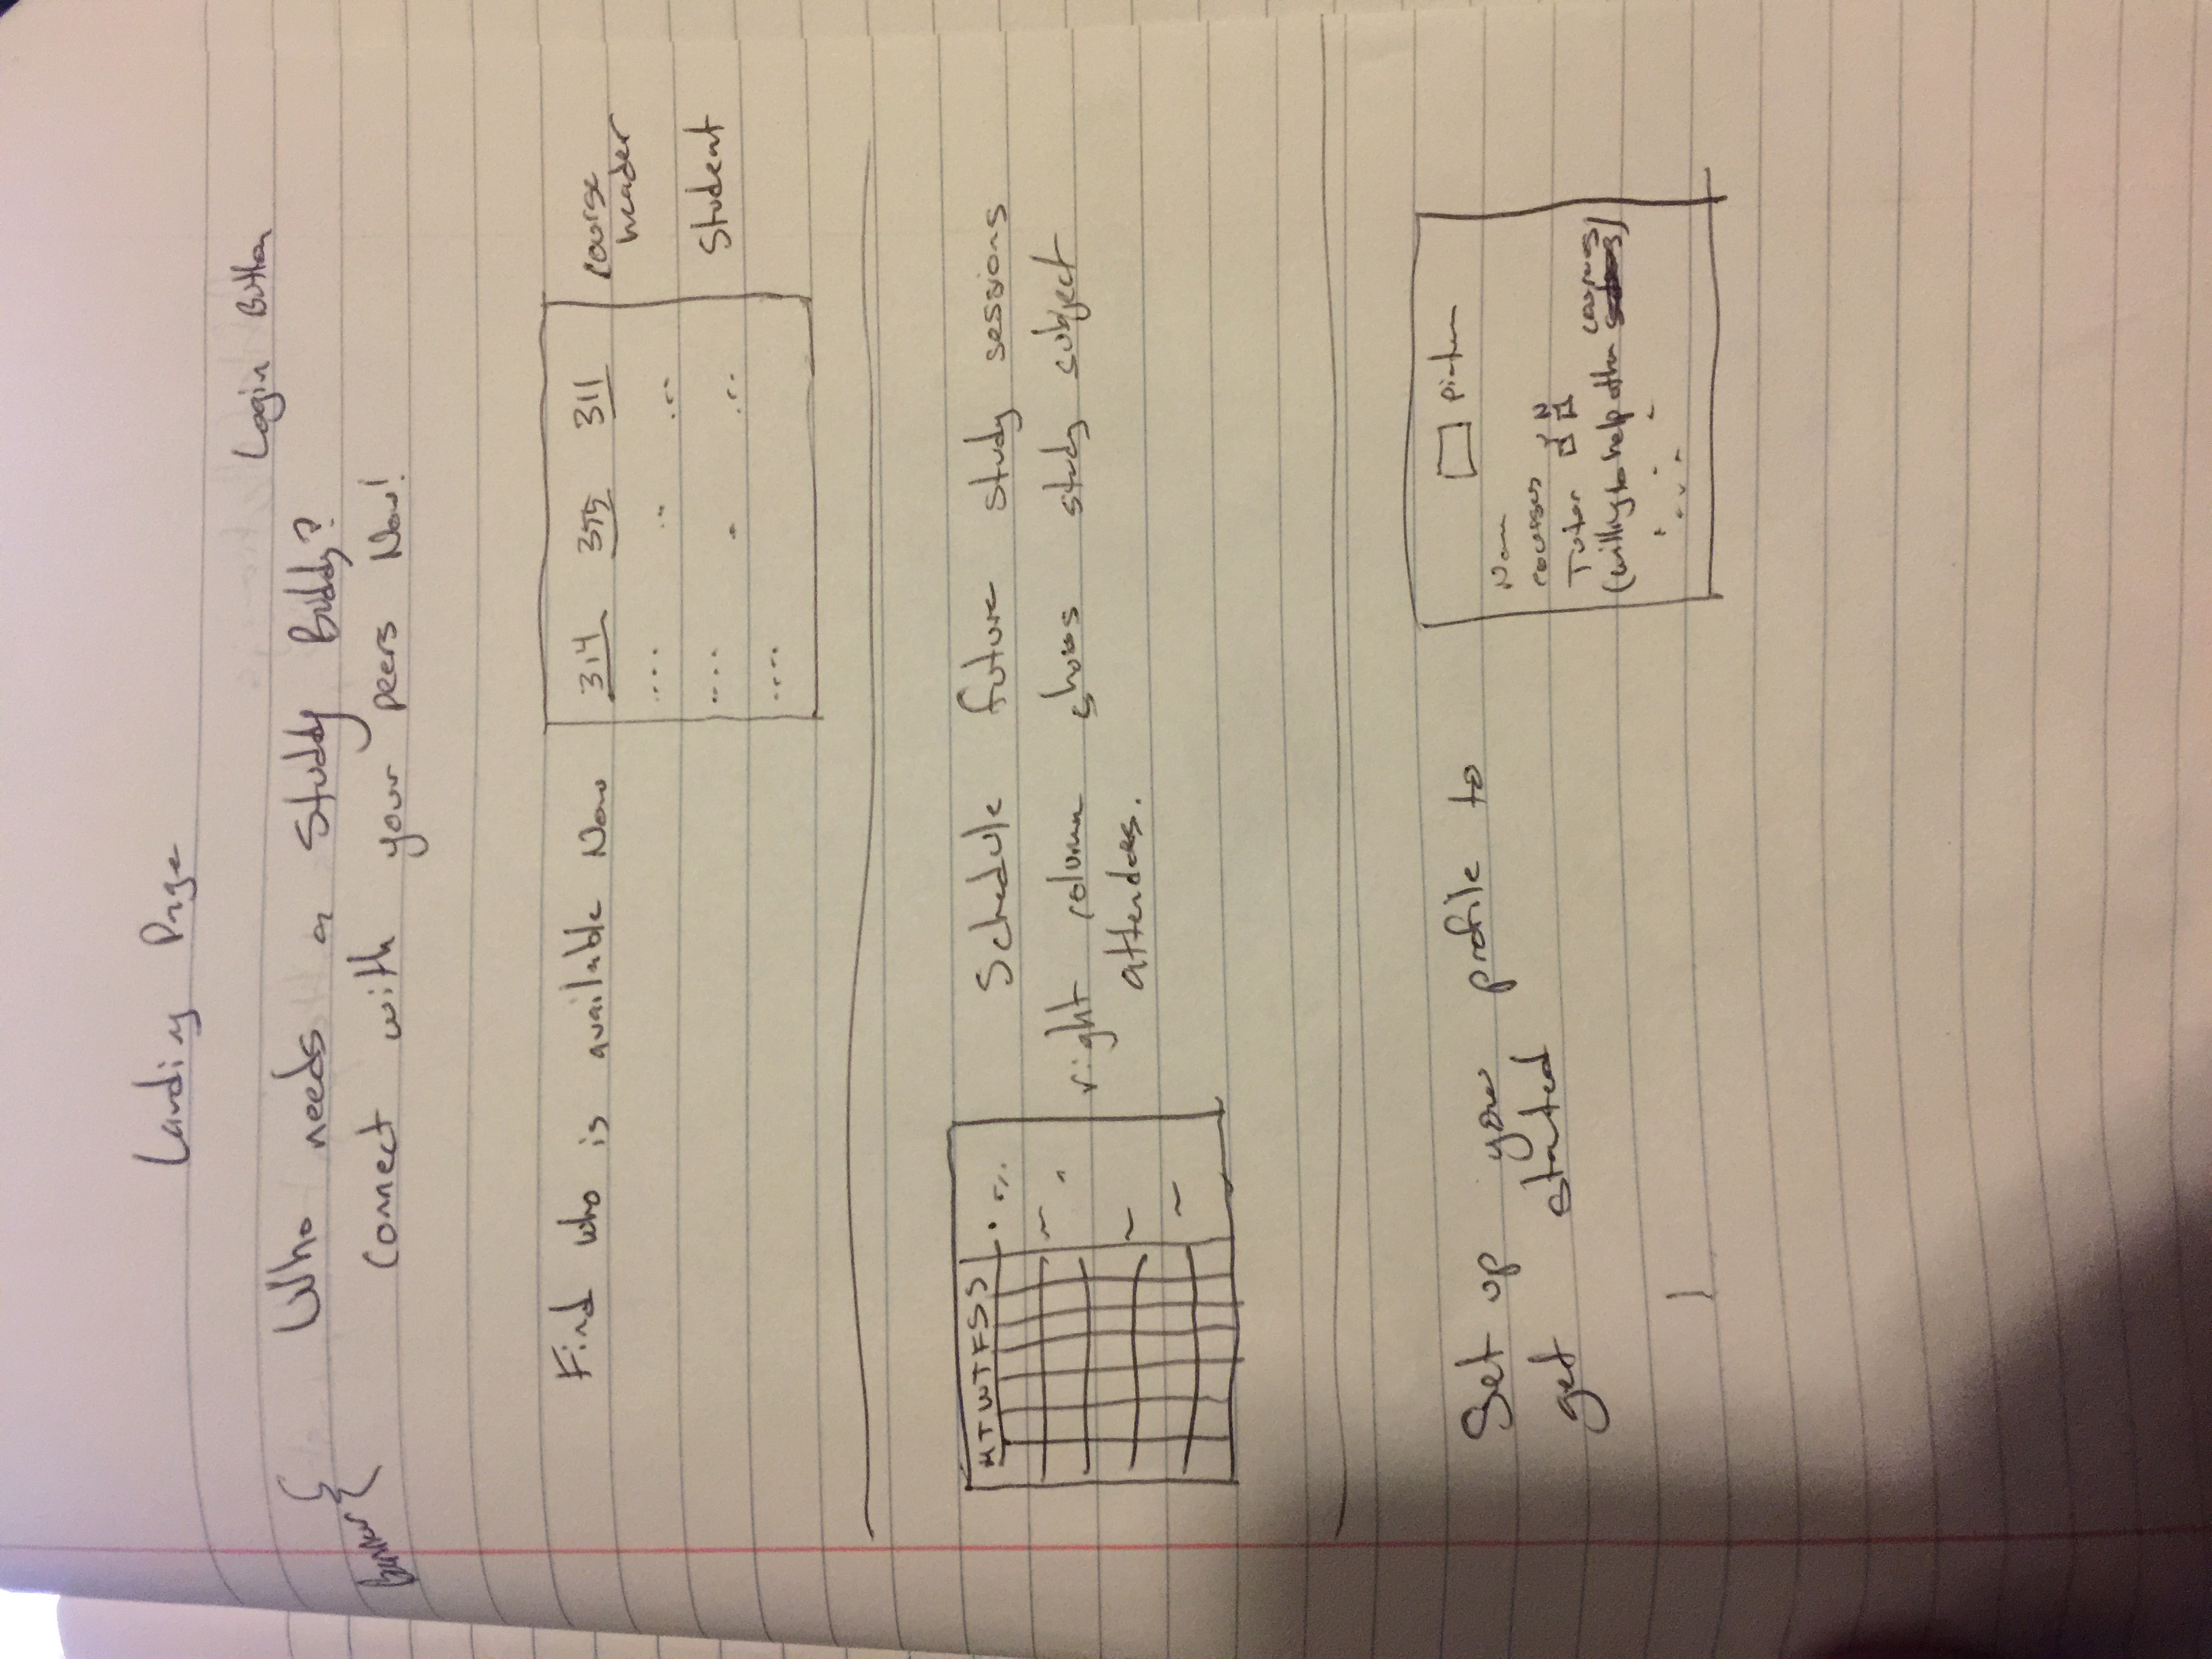 Landing Page
Login Button
Banner
Who needs a Studdy Buddy?
Connect with your peers Now!
Find who is available Now
314 375 311
course
header
Student
M T W T F S S
Schedule future study sessions
right column shows study subject
attendees.
Set up your profile to
get started
picture
Name
courses
Y N
Tutor
courses
(willing to help other )